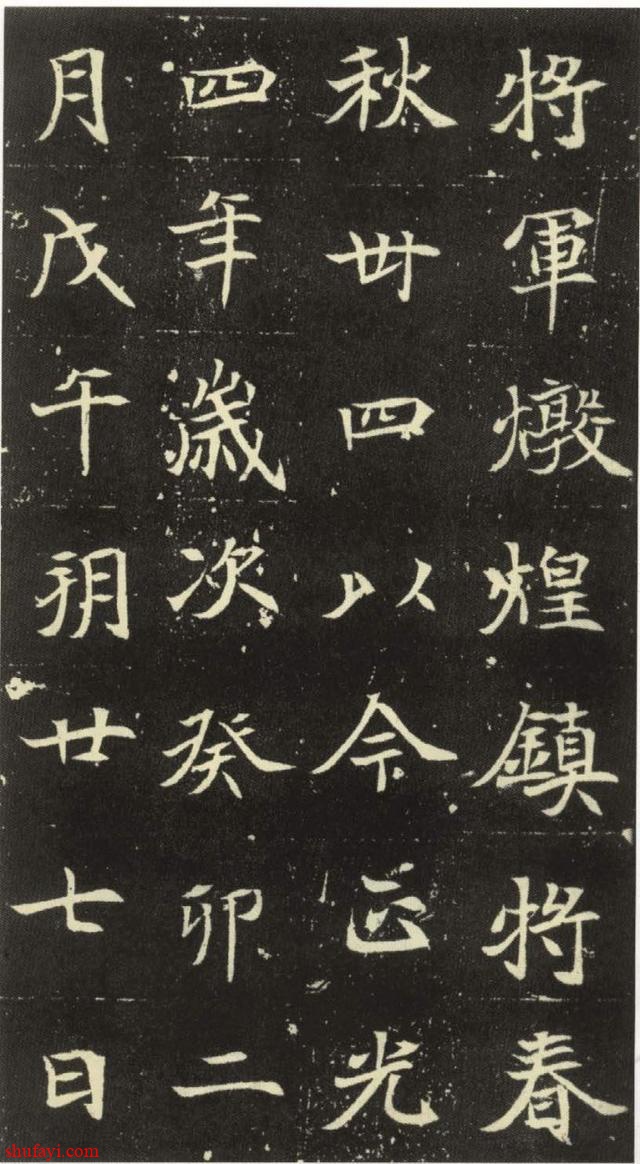 將軍燉煌鎮將春
秋卌四以今正光
四年歲次癸卯二
月戊午朔廿七日
shufayi.com